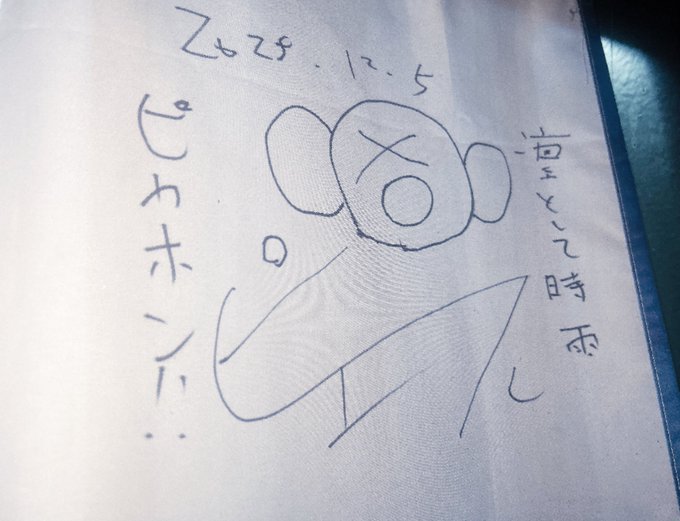 2025.12.5
凛として時雨
ピヤホン